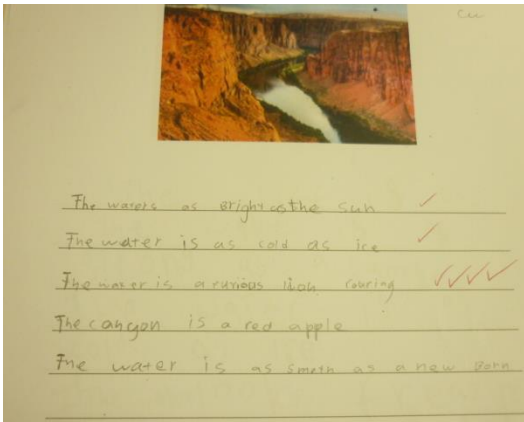 The waters as Bright as the sun
The water is as cold as ice
The water is a furious lion roaring
The canyon is a red apple
The water is as smoth as a new Born